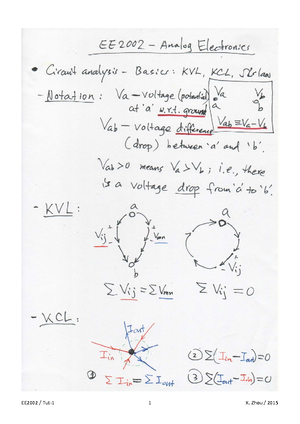 EE2002 – Analog Electronics
• Circuit analysis – Basics: KVL, KCL, Ω's law
- Notation: Va – voltage (potential)
at 'a' w.r.t. ground
Va Vb
a b
Vab ≡ Va – Vb
Vab – voltage difference
(drop) between 'a' and 'b'.
Vab > 0 means Va > Vb; i.e., there
is a voltage drop from 'a' to 'b'.
- KVL:
a a
+ Vij - + Vmn -
b
+ Vij -
Σ Vij = Σ Vmn Σ Vij = 0
- KCL:
Iout
Iin
② Σ(Iin – Iout) = 0
① Σ Iin = Σ Iout ③ Σ(Iout – Iin) = 0
EE2002 / Tut-1 1 K. Zhou / 2015